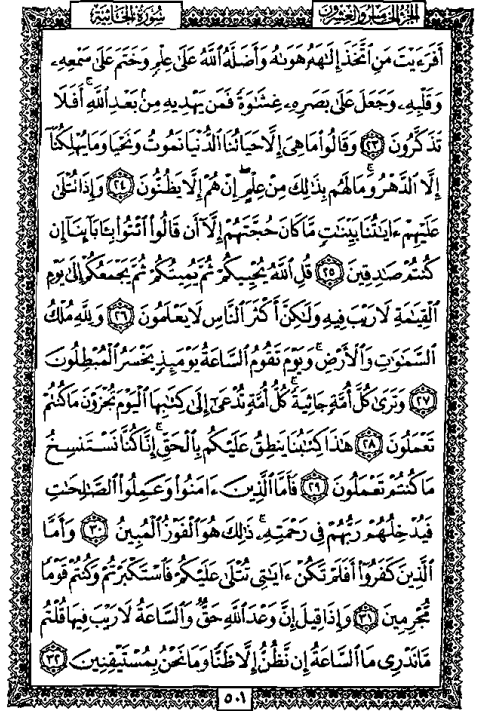 الجزء الخامس والعشرون سورة الجاثية
أَفَرَءَيْتَ مَنِ ٱتَّخَذَ إِلَٰهَهُۥ هَوَىٰهُ وَأَضَلَّهُ ٱللَّهُ عَلَىٰ عِلْمٍ وَخَتَمَ عَلَىٰ سَمْعِهِۦ
وَقَلْبِهِۦ وَجَعَلَ عَلَىٰ بَصَرِهِۦ غِشَٰوَةً فَمَن يَهْدِيهِ مِنۢ بَعْدِ ٱللَّهِ ۚ أَفَلَا
تَذَكَّرُونَ ٢٣ وَقَالُوا۟ مَا هِىَ إِلَّا حَيَاتُنَا ٱلدُّنْيَا نَمُوتُ وَنَحْيَا وَمَا يُهْلِكُنَآ
إِلَّا ٱلدَّهْرُ ۚ وَمَا لَهُم بِذَٰلِكَ مِنْ عِلْمٍ ۖ إِنْ هُمْ إِلَّا يَظُنُّونَ ٢٤ وَإِذَا تُتْلَىٰ
عَلَيْهِمْ ءَايَٰتُنَا بَيِّنَٰتٍ مَّا كَانَ حُجَّتَهُمْ إِلَّآ أَن قَالُوا۟ ٱئْتُوا۟ بِـَٔابَآئِنَآ إِن
كُنتُمْ صَٰدِقِينَ ٢٥ قُلِ ٱللَّهُ يُحْيِيكُمْ ثُمَّ يُمِيتُكُمْ ثُمَّ يَجْمَعُكُمْ إِلَىٰ يَوْمِ
ٱلْقِيَٰمَةِ لَا رَيْبَ فِيهِ وَلَٰكِنَّ أَكْثَرَ ٱلنَّاسِ لَا يَعْلَمُونَ ٢٦ وَلِلَّهِ مُلْكُ
ٱلسَّمَٰوَٰتِ وَٱلْأَرْضِ ۚ وَيَوْمَ تَقُومُ ٱلسَّاعَةُ يَوْمَئِذٍ يَخْسَرُ ٱلْمُبْطِلُونَ
٢٧ وَتَرَىٰ كُلَّ أُمَّةٍ جَاثِيَةً ۚ كُلُّ أُمَّةٍ تُدْعَىٰٓ إِلَىٰ كِتَٰبِهَا ٱلْيَوْمَ تُجْزَوْنَ مَا كُنتُمْ
تَعْمَلُونَ ٢٨ هَٰذَا كِتَٰبُنَا يَنطِقُ عَلَيْكُم بِٱلْحَقِّ ۚ إِنَّا كُنَّا نَسْتَنسِخُ
مَا كُنتُمْ تَعْمَلُونَ ٢٩ فَأَمَّا ٱلَّذِينَ ءَامَنُوا۟ وَعَمِلُوا۟ ٱلصَّٰلِحَٰتِ
فَيُدْخِلُهُمْ رَبُّهُمْ فِى رَحْمَتِهِۦ ۚ ذَٰلِكَ هُوَ ٱلْفَوْزُ ٱلْمُبِينُ ٣٠ وَأَمَّا
ٱلَّذِينَ كَفَرُوٓا۟ أَفَلَمْ تَكُنْ ءَايَٰتِى تُتْلَىٰ عَلَيْكُمْ فَٱسْتَكْبَرْتُمْ وَكُنتُمْ قَوْمًا
مُّجْرِمِينَ ٣١ وَإِذَا قِيلَ إِنَّ وَعْدَ ٱللَّهِ حَقٌّ وَٱلسَّاعَةُ لَا رَيْبَ فِيهَا قُلْتُم
مَّا نَدْرِى مَا ٱلسَّاعَةُ إِن نَّظُنُّ إِلَّا ظَنًّا وَمَا نَحْنُ بِمُسْتَيْقِنِينَ ٣٢
٥٠١